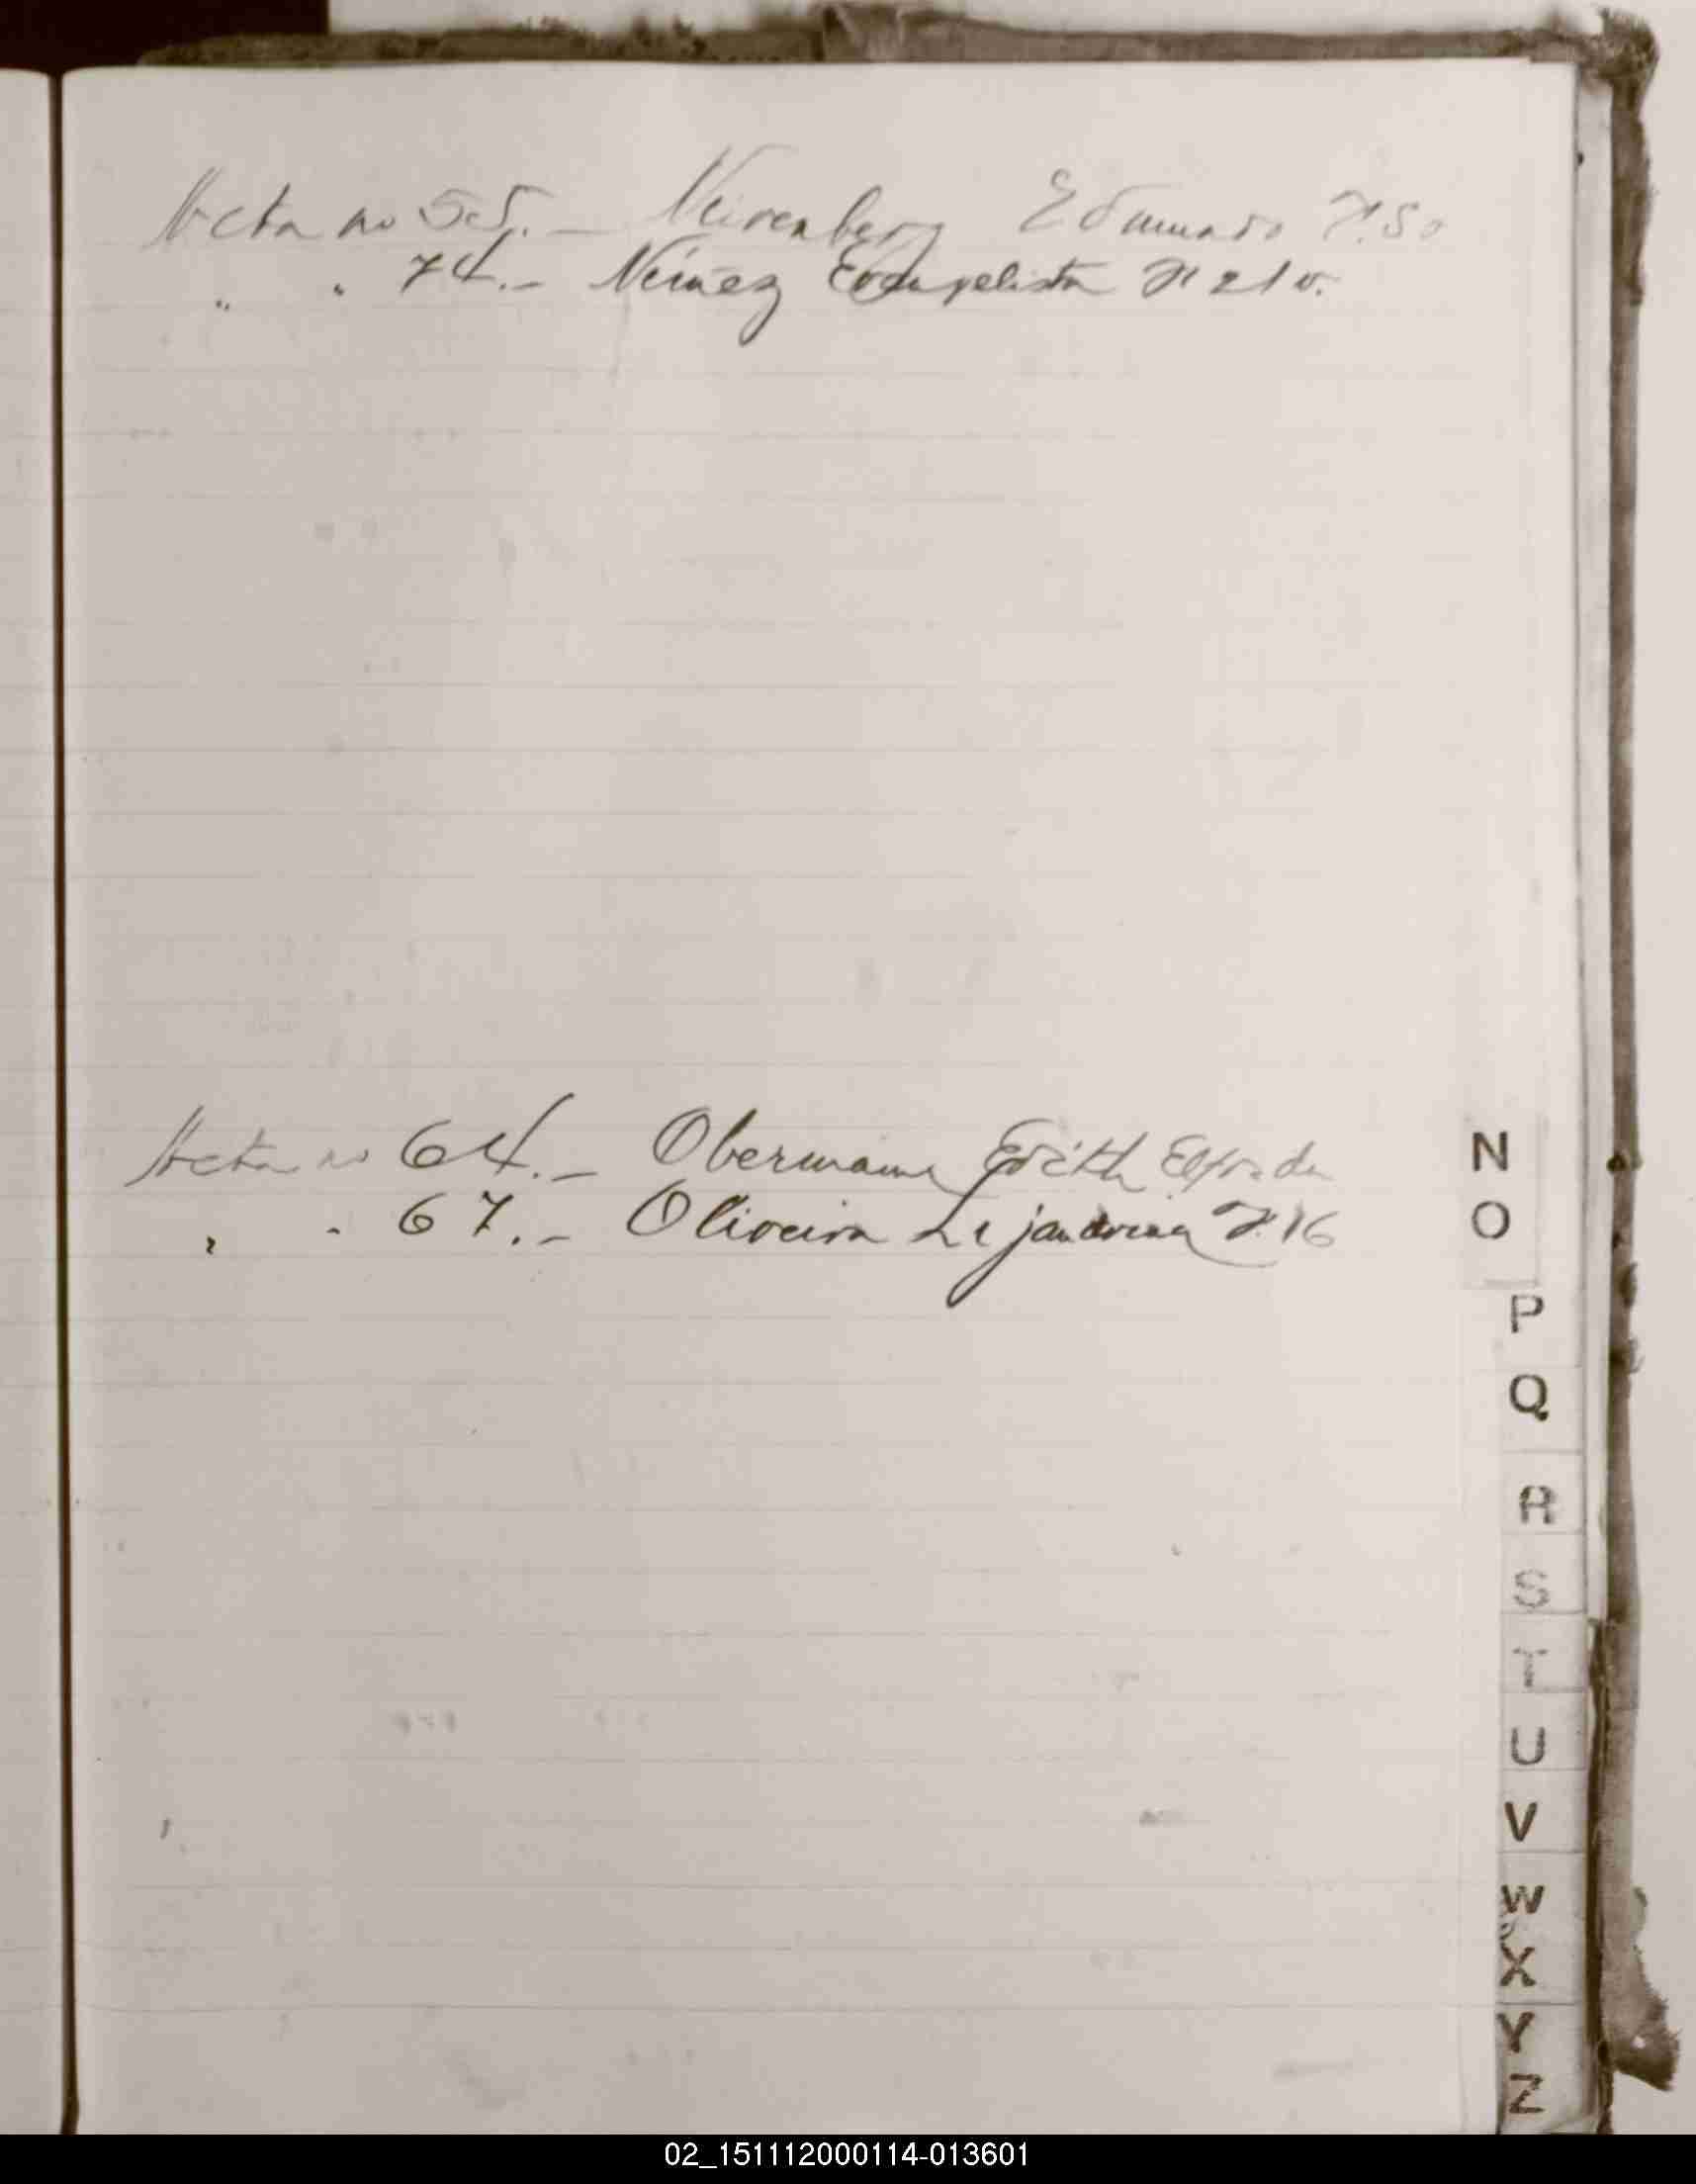 Acta no 55.- Neirenberg Edmundo F.50
" " 74.- Núñez Evangelista F 21 v.
Acta no 64.- Obermann Edith Elfrida
" " 67.- Oliveira Lejandrina F.16
N
O
P
Q
R
S
T
U
V
W
X
Y
Z
02_151112000114-013601